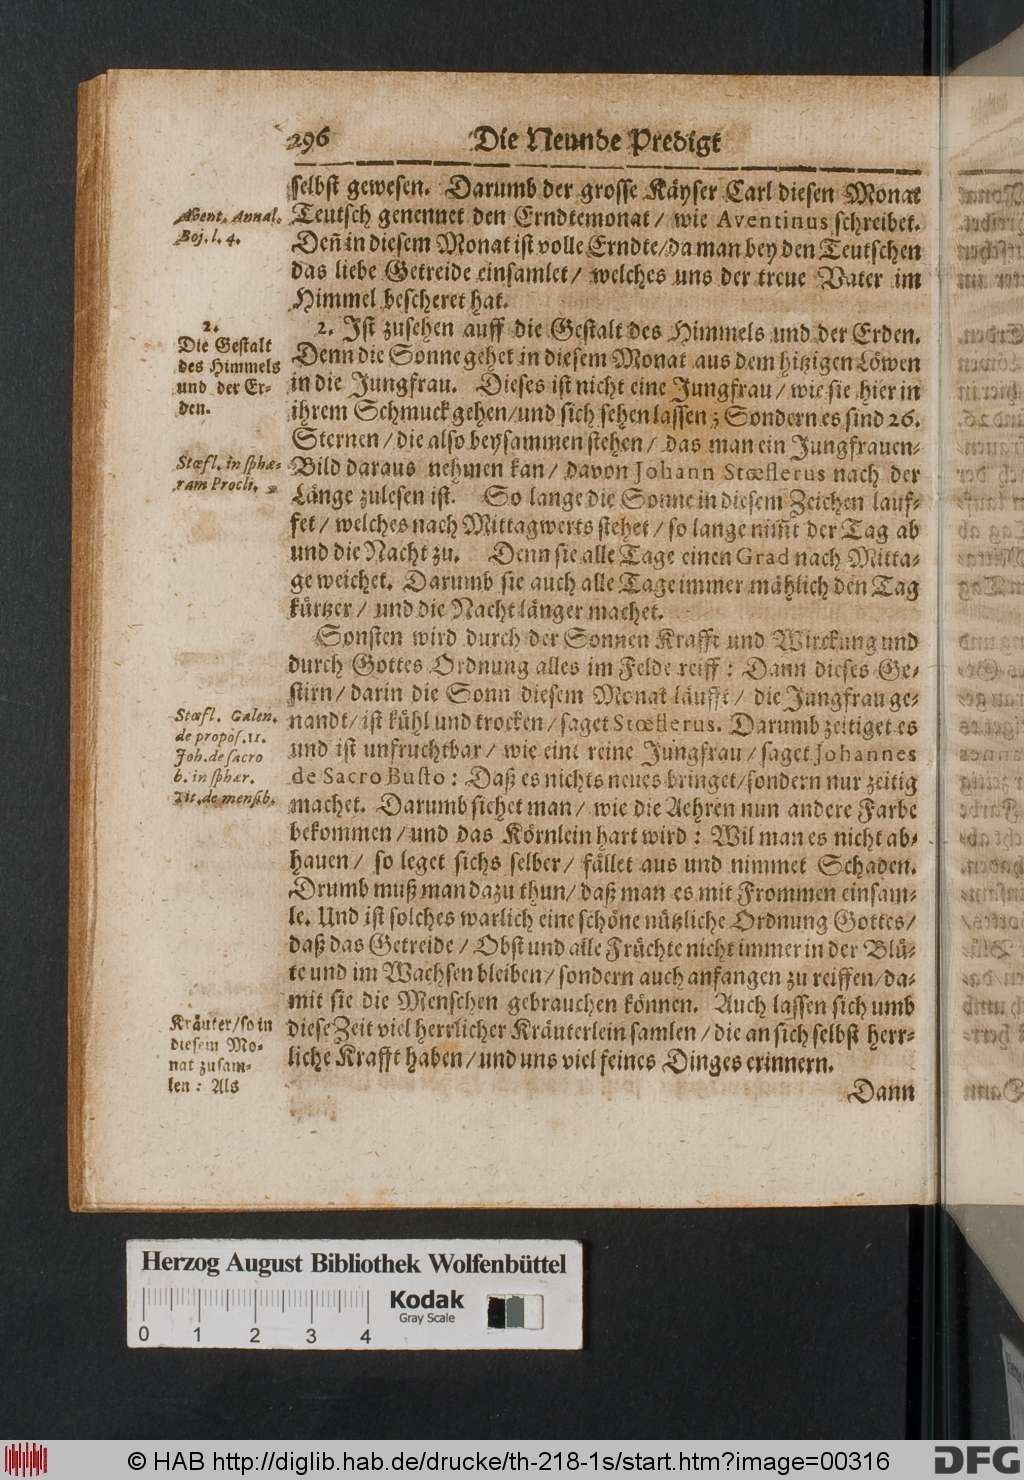 296 Die Neunde Predigt
selbst gewesen. Darumb der grosse Käyser Carl diesen Monat
Teutsch genennet den Erndtemonat / wie Aventinus schreibet.
Deñ in diesem Monat ist volle Erndte / da man bey den Teutschen
das liebe Getreide einsamlet / welches uns der treue Vater im
Himmel bescheret hat.
Abent. Annal.
Boj. l. 4.
2. Ist zusehen auff die Gestalt des Himmels und der Erden.
Denn die Sonne gehet in diesem Monat aus dem hitzigen Löwen
in die Jungfrau. Dieses ist nicht eine Jungfrau / wie sie hier in
ihrem Schmuck gehen / und sich sehen lassen ; Sondern es sind 26.
Sternen / die also beysammen stehen / das man ein Jungfrauen-
Bild daraus nehmen kan / davon Johann Stœflerus nach der
Länge zulesen ist. So lange die Sonne in diesem Zeichen lauf-
fet / welches nach Mittagwerts stehet / so lange nim̃t der Tag ab
und die Nacht zu. Denn sie alle Tage einen Grad nach Mitta-
ge weichet. Darumb sie auch alle Tage immer mählich den Tag
kürtzer / und die Nacht länger machet.
2.
Die Gestalt
des Himmels
und der Er-
den.
Stœfl. in sphæ-
ram Procli.
Sonsten wird durch der Sonnen Krafft und Wirckung und
durch Gottes Ordnung alles im Felde reiff : Dann dieses Ge-
stirn / darin die Sonn diesem Monat läufft / die Jungfrau ge-
nandt / ist kühl und trocken / saget Stœflerus. Darumb zeitiget es
und ist unfruchtbar / wie eine reine Jungfrau / saget Johannes
de Sacro Busto : Daß es nichts neues bringet / sondern nur zeitig
machet. Darumb siehet man / wie die Aehren nun andere Farbe
bekommen / und das Körnlein hart wird : Wil man es nicht ab-
hauen / so leget sichs selber / fället aus und nimmet Schaden.
Drumb muß man dazu thun / daß man es mit Frommen einsam-
le. Und ist solches warlich eine schöne nützliche Ordnung Gottes /
daß das Getreide / Obst und alle Früchte nicht immer in der Blü-
te und im Wachsen bleiben / sondern auch anfangen zu reiffen / da-
mit sie die Menschen gebrauchen können. Auch lassen sich umb
diese Zeit viel herrlicher Kräuterlein samlen / die an sich selbst herr-
liche Krafft haben / und uns viel feines Dinges erinnern.
Stœfl. Galen.
de propos. 11.
Joh. de sacro
b. in sphær.
Tit. de mensib.
Kräuter / so in
diesem Mo-
nat zusam-
len : Als
Dann
Herzog August Bibliothek Wolfenbüttel
Kodak
Gray Scale
0 1 2 3 4
© HAB http://diglib.hab.de/drucke/th-218-1s/start.htm?image=00316
DFG